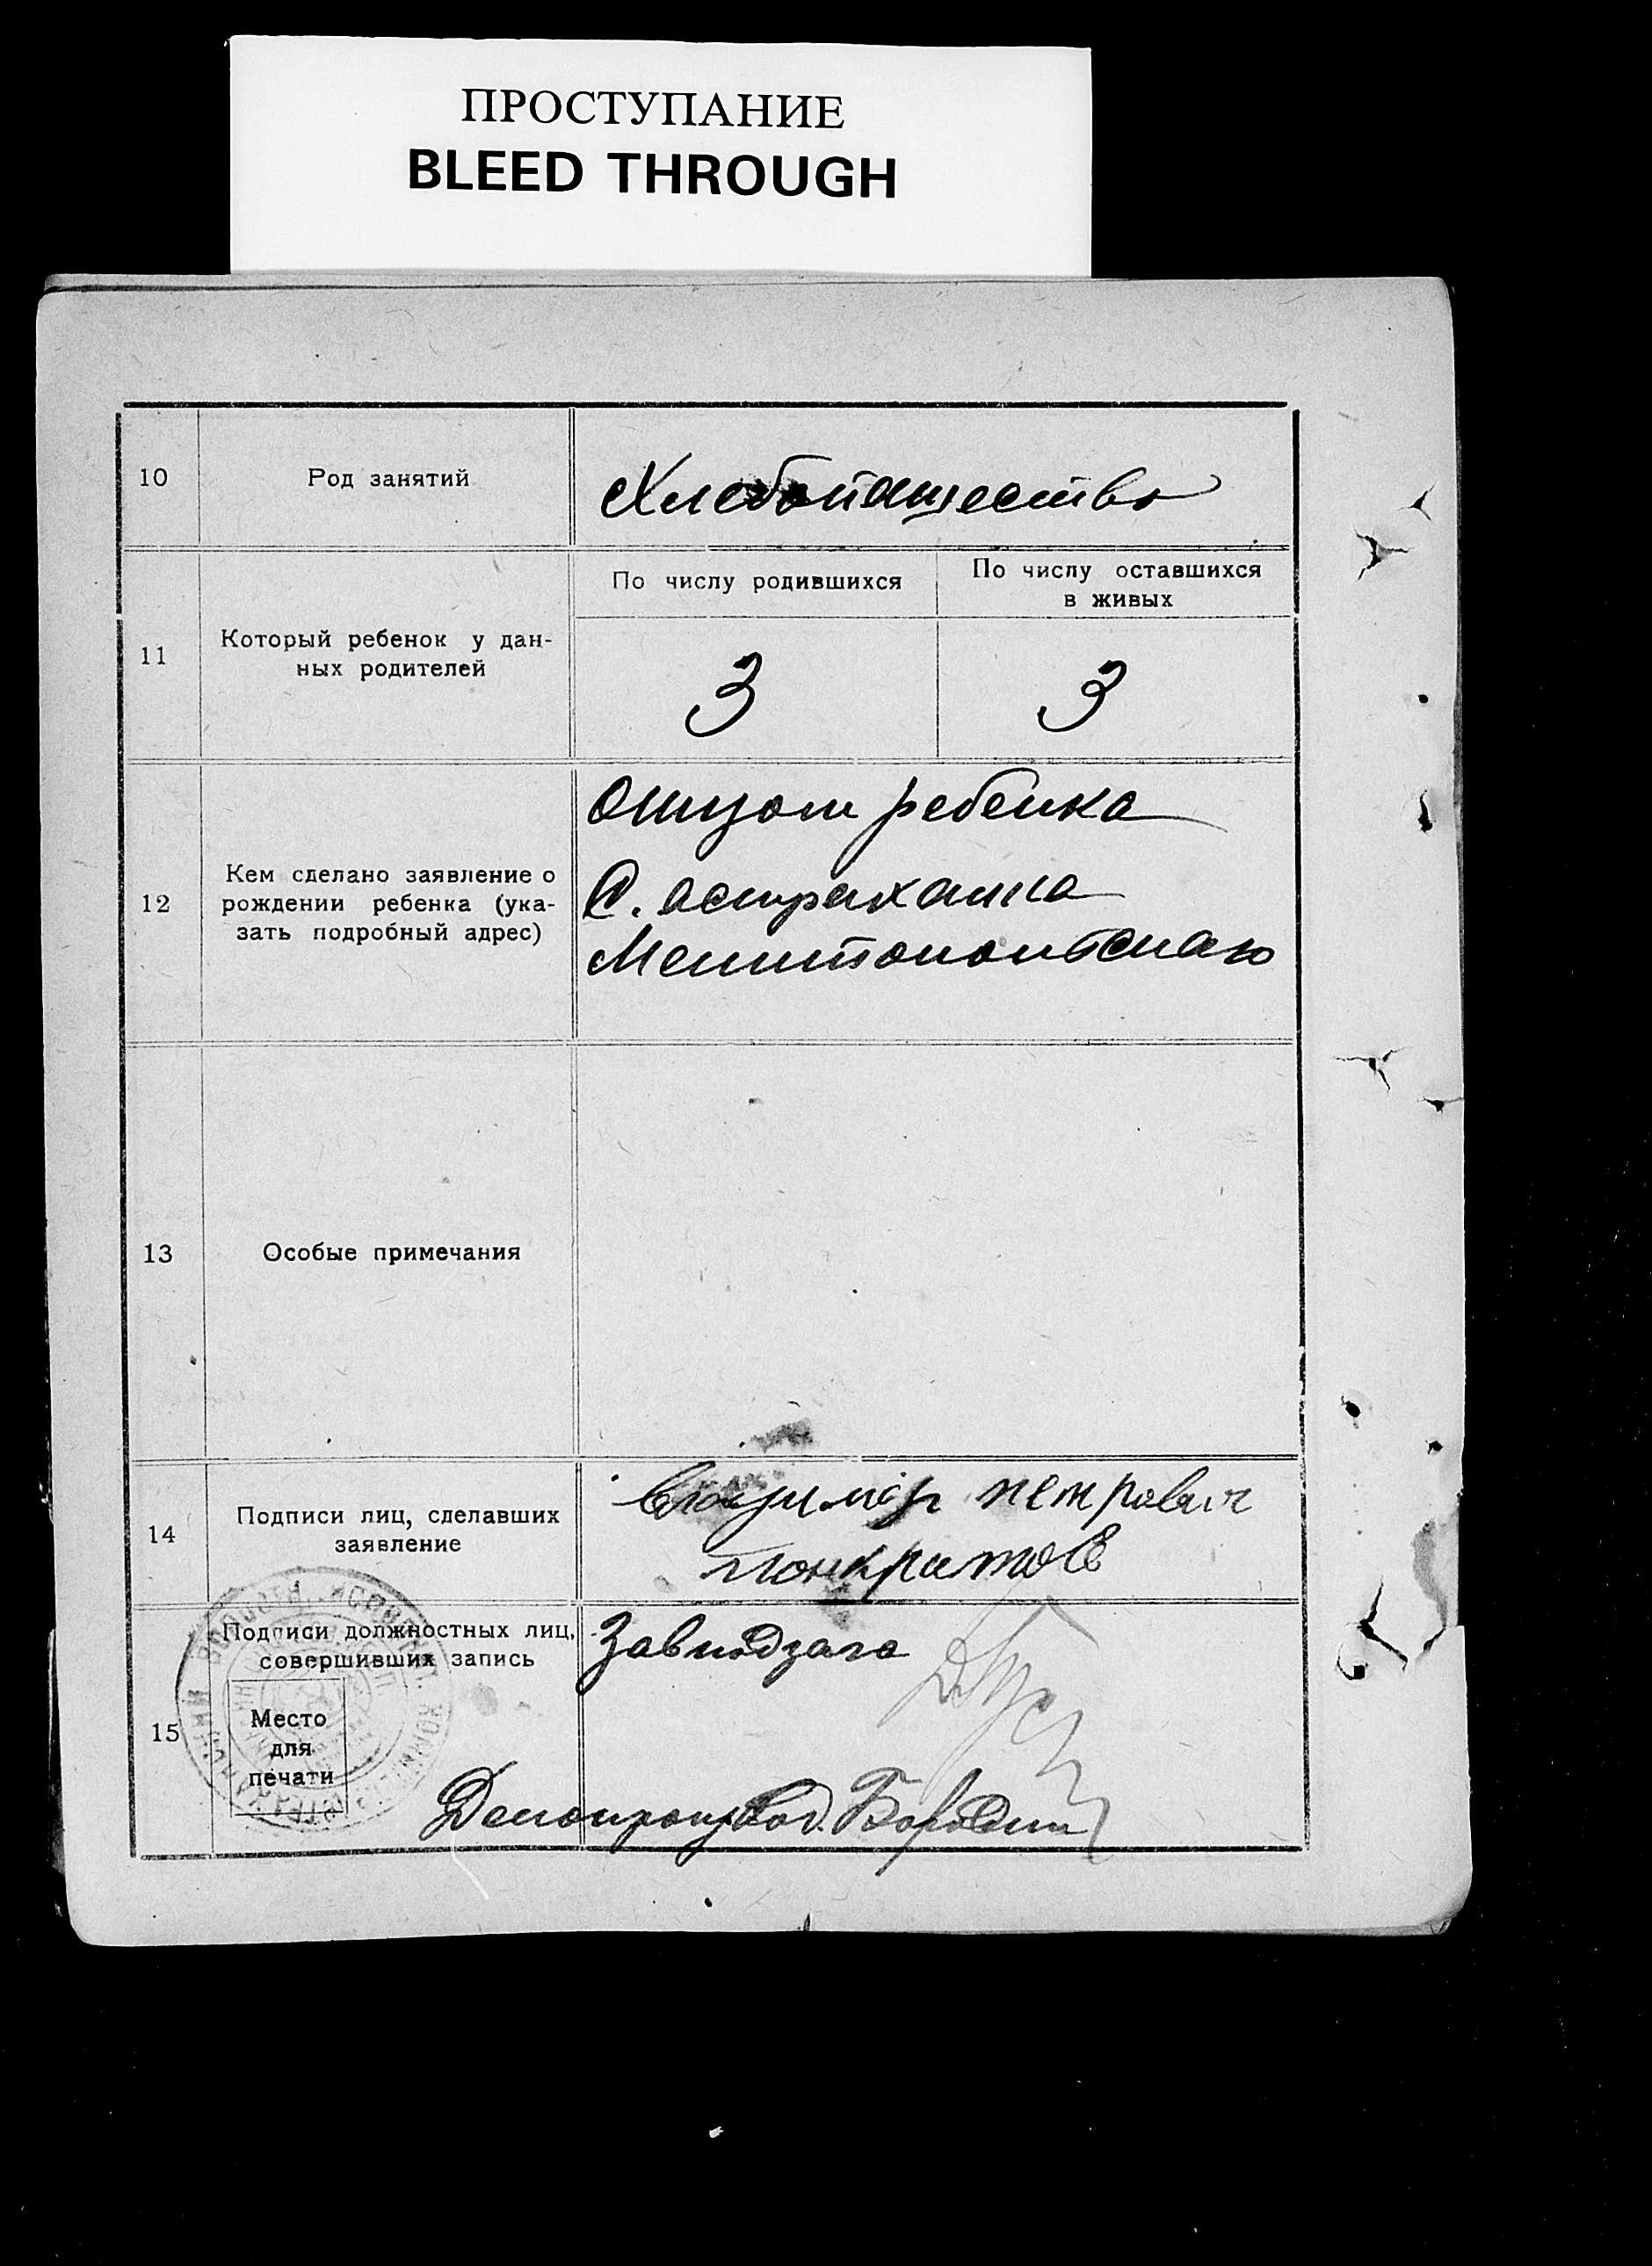 ПРОСТУПАНИЕ
BLEED THROUGH
10
Род занятий
Хлебопашество
11
Который ребенок у дан-
ных родителей
По числу родившихся
По числу оставшихся
в живых
3
3
12
Кем сделано заявление о
рождении ребенка (ука-
зать подробный адрес)
Отцом ребенка
С. Астраханка
Мелитопольскаго
13
Особые примечания
14
Подписи лиц, сделавших
заявление
Владимир петрович
понкратов
15
Подписи должностных лиц,
совершивших запись
Место
для
печати
Завподзага
Делопроизвод. Бородин